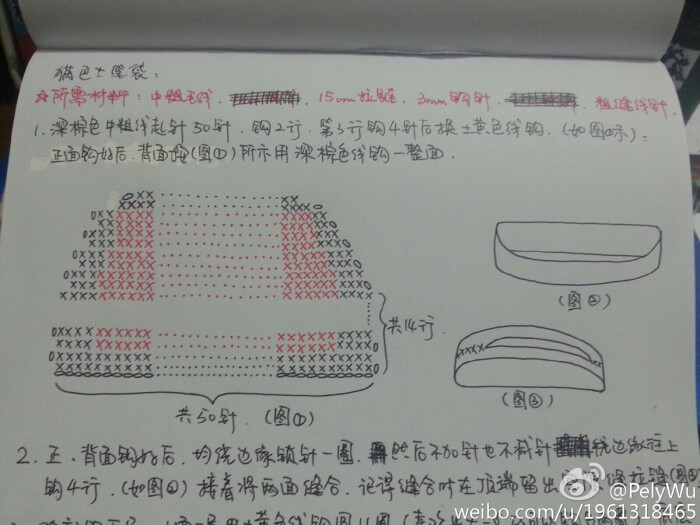 猫包士笔袋:
☆所需材料: 中粗毛线. 15cm拉链. 3mm钩针. 粗缝线针.
1. 深棕色中粗线起针50针. 钩2行. 第3行钩4针后换土黄色线钩. (如图①示):
正面钩好后. 背面按(图①)所示用深棕色线钩一整面.
共14行.
(图②)
(图③)
共50针. (图①)
2. 正. 背面钩好后. 均绕边缘锁针一圈. 然后不加针也不减针绕边缘往上
钩4行. (如图②) 接着将两面缝合. 记得缝合时在顶端留出
@PelyWu
weibo.com/u/1961318465